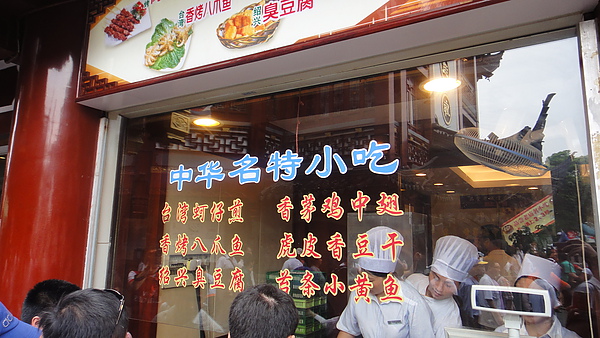 台湾
香烤八爪鱼
绍兴
臭豆腐
中华名特小吃
台湾蚵仔煎 香茅鸡中翅
香烤八爪鱼 虎皮香豆干
绍兴臭豆腐 苔条小黄鱼